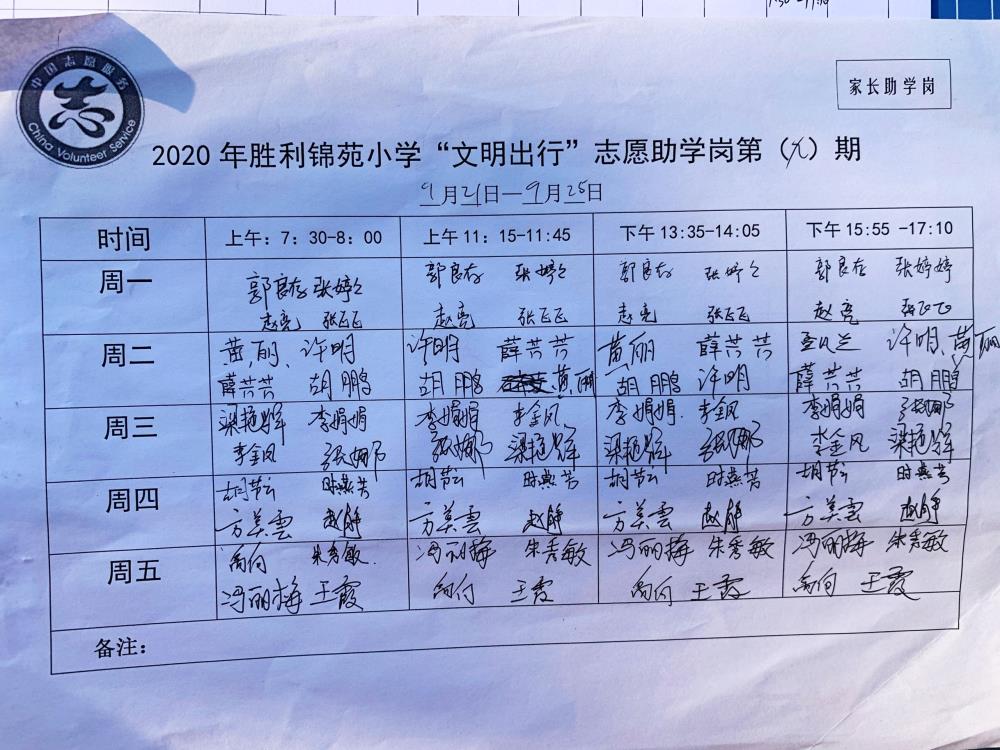 7:30-11:10
中国志愿服务
China Volunteer Service
家长助学岗
2020年胜利锦苑小学“文明出行”志愿助学岗第（八）期
9月21日—9月25日
时间 上午：7：30-8：00 上午11：15-11:45 下午13:35-14:05 下午15:55 -17:10
周一 郭良存 张婷婷 郭良存 张婷婷 郭良存 张婷婷 郭良存 张婷婷
赵亮 张飞飞 赵亮 张飞飞 赵亮 张飞飞 赵亮 张飞飞
周二 黄丽、许明 许明 薛芸芸 黄丽 薛芸芸 许明、黄丽
薛芸芸 胡鹏 胡鹏 黄丽 胡鹏 许明 薛芸芸 胡鹏
周三 梁艳辉 李娟娟 李娟娟 李金凤 李娟娟 李金凤 李娟娟 张娜
李金凤 张娜 张娜 梁艳辉 梁艳辉 张娜 李金凤 梁艳辉
周四 胡节云 时燕芳 胡节云 时燕芳 胡节云 时燕芳 胡节云 时燕芳
方美雲 赵静 方美雲 赵静 方美雲 赵静 方美雲 赵静
周五 朱秀敏 冯丽梅 朱秀敏 冯丽梅 朱秀敏 冯丽梅 朱秀敏
冯丽梅 王霞 王霞 王霞 王霞
备注：